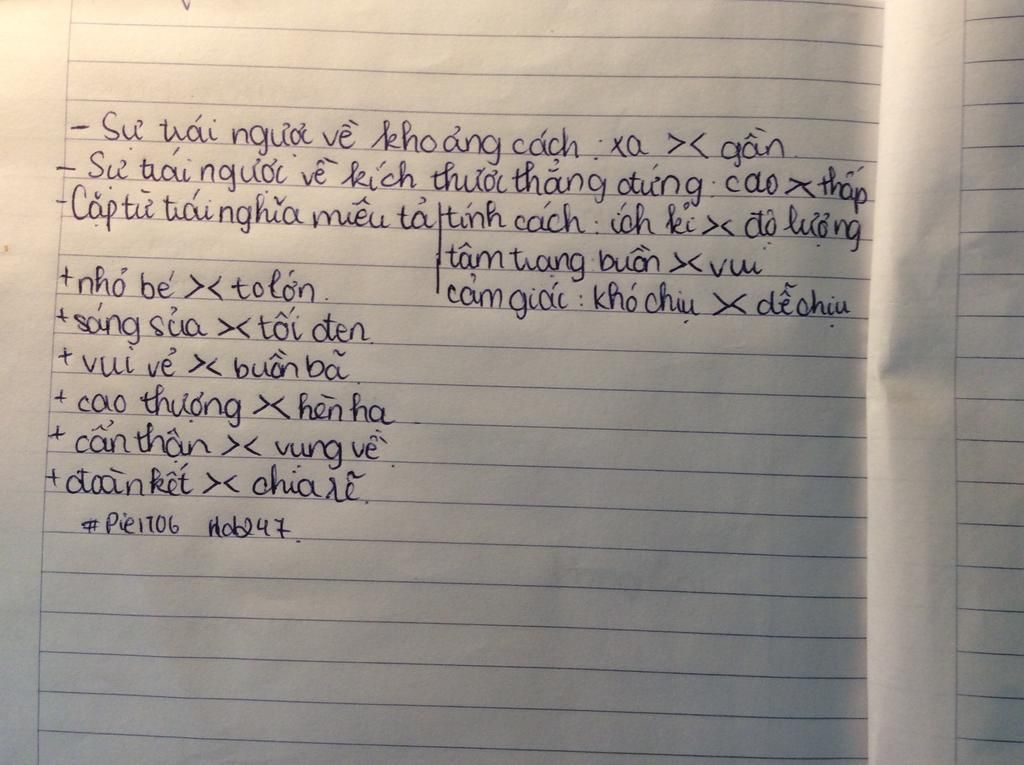 - Sự trái ngược về khoảng cách : xa >< gần.
- Sự trái ngược về kích thước thẳng đứng : cao >< thấp
- Cặp từ trái nghĩa miêu tả tính cách : ích kỉ >< độ lượng
tâm trạng buồn >< vui
+ nhỏ bé >< to lớn.
cảm giác : khó chịu >< dễ chịu
+ sáng sủa >< tối đen.
+ vui vẻ >< buồn bã.
+ cao thượng >< hèn hạ
+ cẩn thận >< vụng về.
+ đoàn kết >< chia rẽ.
#Pie1706 Hob247.